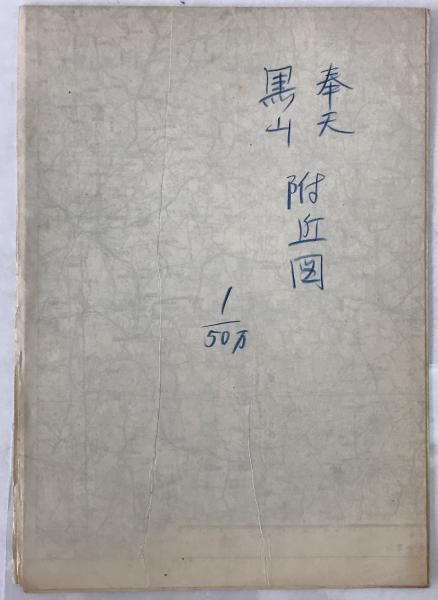 奉天
黒山
附近図
1/50万